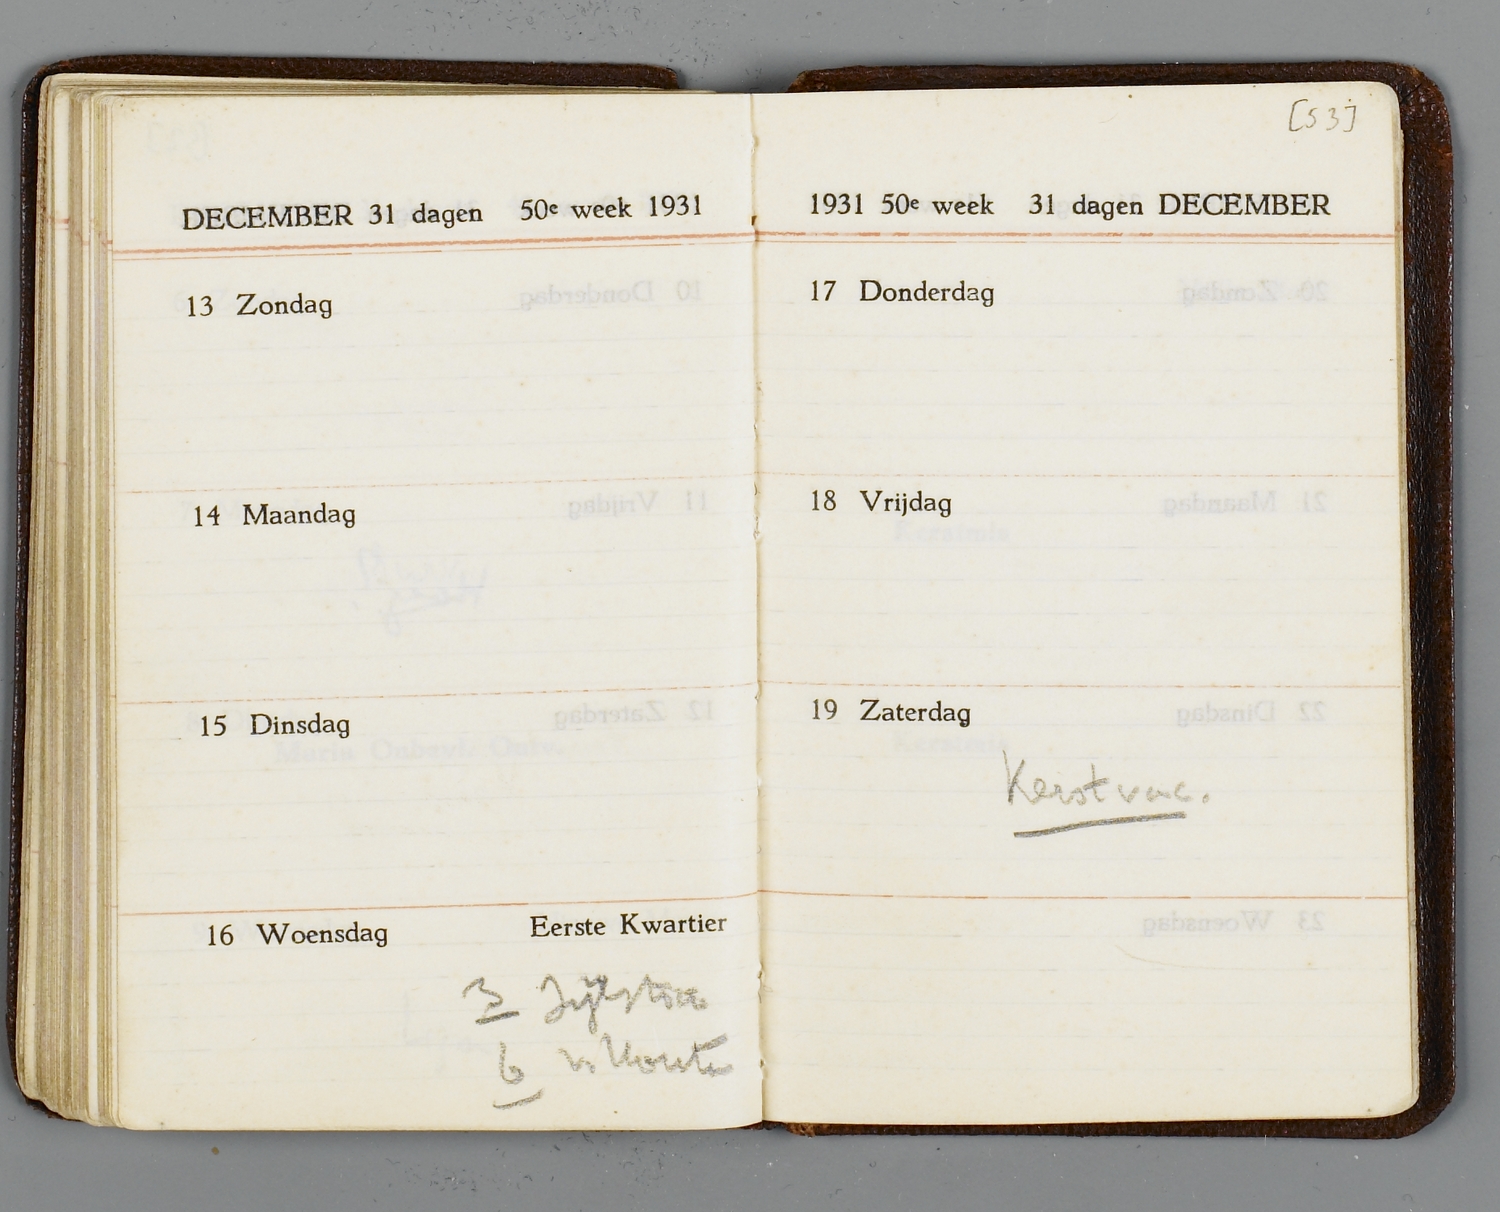 DECEMBER 31 dagen 50e week 1931
13 Zondag
14 Maandag
15 Dinsdag
16 Woensdag Eerste Kwartier
3
6
[53]
1931 50e week 31 dagen DECEMBER
17 Donderdag
18 Vrijdag
19 Zaterdag
Kerstvac.